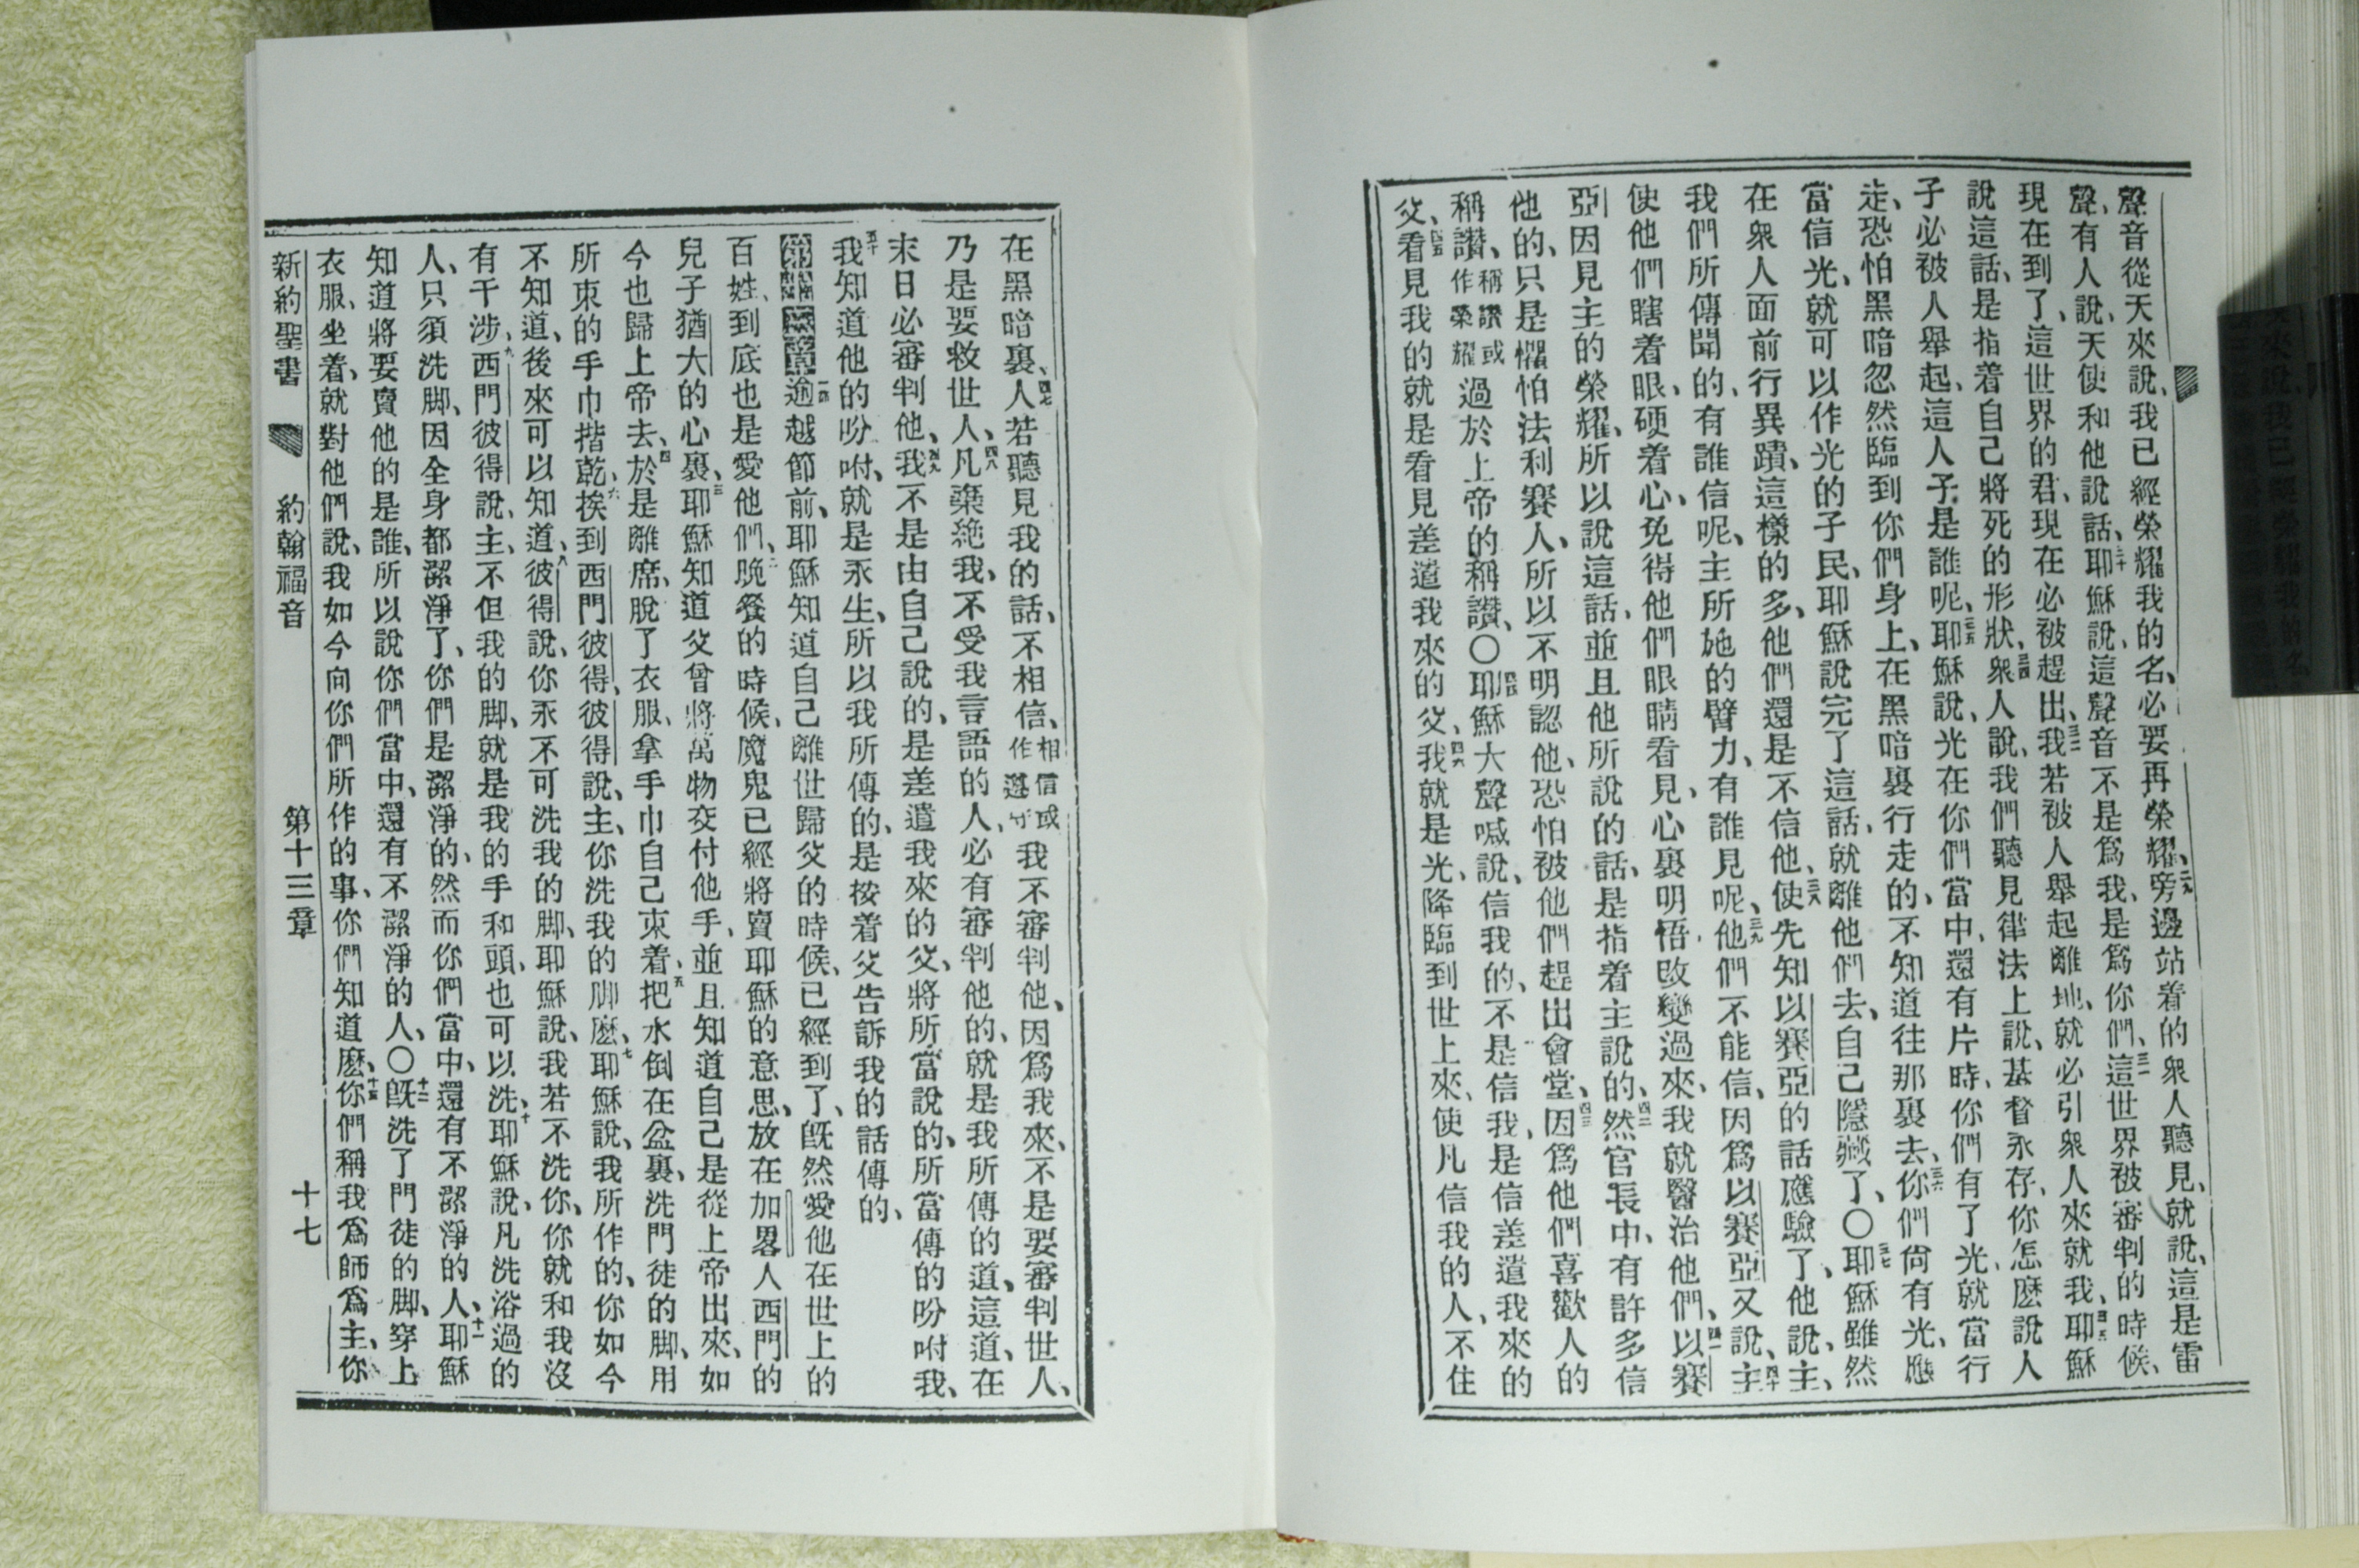 聲音從天來說、我已經榮耀我的名、必要再榮耀、二九旁邊站着的衆人聽見、就說、這是雷
聲、有人說、天使和他說話、三十耶穌說、這聲音不是爲我、是爲你們、三一這世界被審判的時候、
現在到了、這世界的君、現在必被趕出、三二我若被人舉起離地、就必引衆人來就我、三三耶穌
說這話、是指着自己將死的形狀、三四衆人說、我們聽見律法上說、基督永存、你怎麽說人
子必被人舉起、這人子是誰呢、三五耶穌說、光在你們當中、還有片時、你們有了光、就當行
走、恐怕黑暗忽然臨到你們身上、在黑暗裏行走的、不知道往那裏去、三六你們尙有光、應
當信光、就可以作光的子民、耶穌說完了這話、就離他們去、自己隱藏了、〇三七耶穌雖然
在衆人面前行異蹟、這樣的多、他們還是不信他、三八使先知以賽亞的話應驗了、他說、主、
我們所傳聞的、有誰信呢、主所施的臂力、有誰見呢、三九他們不能信、因爲以賽亞又說、四十主
使他們瞎着眼、硬着心、免得他們眼睛看見、心裏明悟、改變過來、我就醫治他們、四一以賽
亞因見主的榮耀、所以說這話、並且他所說的話、是指着主說的、四二然官長中、有許多信
他的、只是懼怕法利賽人、所以不明認他、恐怕被他們趕出會堂、四三因爲他們喜歡人的
稱讚、稱讚或作榮耀過於上帝的稱讚、〇四四耶穌大聲喊說、信我的、不是信我、是信差遣我來的
父、四五看見我的就是看見差遣我來的父、四六我就是光、降臨到世上來、使凡信我的人、不住
在黑暗裏、四七人若聽見我的話、不相信、相信或作遵守我不審判他、因爲我來、不是要審判世人、
乃是要救世人、四八凡棄絶我、不受我言語的人、必有審判他的、就是我所傳的道、這道、在
末日必審判他、四九我不是由自己說的、是差遣我來的父、將所當說的、所當傳的吩咐我、
五十我知道他的吩咐、就是永生、所以我所傳的、是按着父告訴我的話傳的、
第十三章一逾越節前、耶穌知道自己離世歸父的時候、已經到了、旣然愛他在世上的
百姓、到底也是愛他們、二晚餐的時候、魔鬼已經將賣耶穌的意思、放在加畧人西門的
兒子猶大的心裏、三耶穌知道父曾將萬物交付他手、並且知道自己是從上帝出來、如
今也歸上帝去、四於是離席、脫了衣服、拿手巾自己束着、五把水倒在盆裏、洗門徒的脚、用
所束的手巾揩乾、六挨到西門彼得、彼得說、主、你洗我的脚麽、七耶穌說、我所作的、你如今
不知道、後來可以知道、八彼得說、你永不可洗我的脚、耶穌說、我若不洗你、你就和我沒
有干涉、九西門彼得說、主、不但我的脚、就是我的手和頭、也可以洗、十耶穌說、凡洗浴過的
人、只須洗脚、因全身都潔淨了、你們是潔淨的、然而你們當中、還有不潔淨的人、十一耶穌
知道將要賣他的是誰、所以說你們當中、還有不潔淨的人、〇十二旣洗了門徒的脚、穿上
衣服、坐着、就對他們說、我如今向你們所作的事、你們知道麽、十三你們稱我爲師爲主、你
新約聖書 約翰福音 第十三章 十七